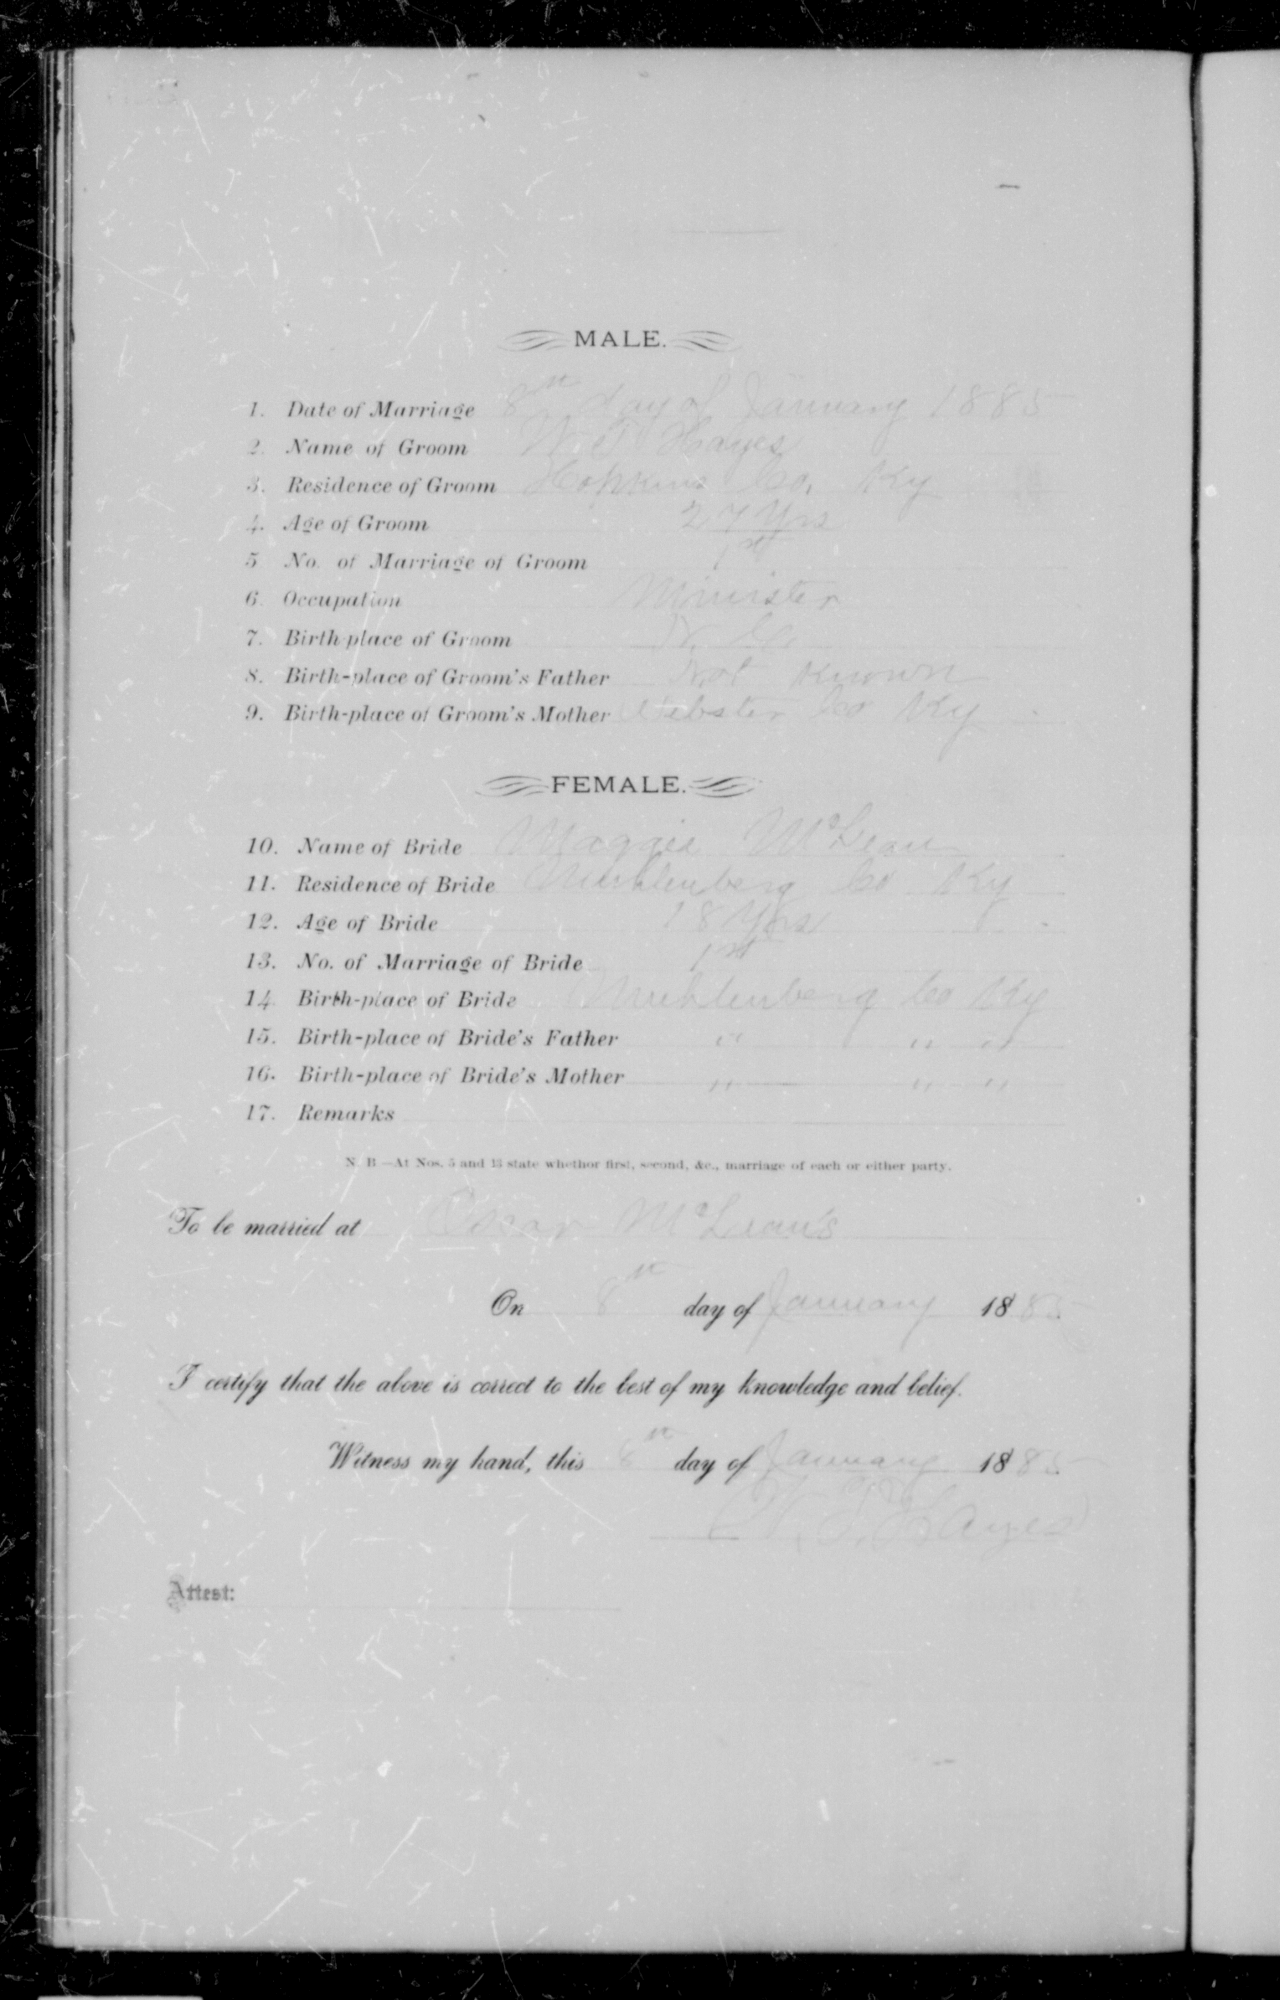 MALE.
1. Date of Marriage 8th day of January 1885
2. Name of Groom W. T. Hayes
3. Residence of Groom Hopkins Co, Ky
4. Age of Groom 27 Yrs
5 No. of Marriage of Groom 1st
6. Occupation Minister
7. Birth place of Groom N. C.
8. Birth-place of Groom's Father Not Known
9. Birth-place of Groom's Mother Webster Co Ky
FEMALE.
10. Name of Bride Maggie McLean
11. Residence of Bride Muhlenberg Co Ky
12. Age of Bride 18 Yrs
13. No. of Marriage of Bride 1st
14. Birth-place of Bride Muhlenberg Co Ky
15. Birth-place of Bride's Father " " "
16. Birth-place of Bride's Mother " " "
17. Remarks
N. B.—At Nos. 5 and 13 state whethor first, second, &c., marriage of each or either party.
To be married at Oscar McLean's
On 8th day of January 1885
I certify that the above is correct to the best of my knowledge and belief.
Witness my hand, this 8th day of January 1885
W. T. Hayes
Attest: